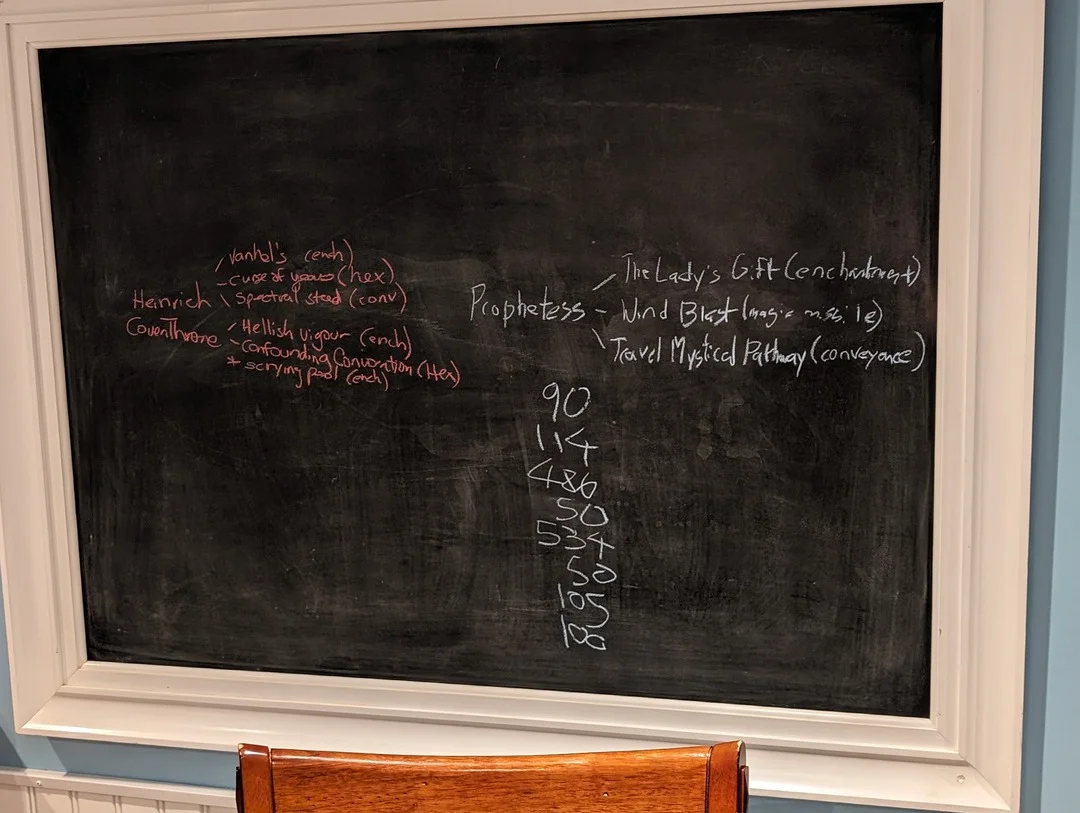 Vanhel's (ench)
- curse of years (hex)
Heinrich \ Spectral steed (conv)
Coven Throne / Hellish vigour (ench)
- Confounding Convocation (Hex)
+ scrying pool (ench)
/ The Lady's Gift (enchantment)
Prophetess - Wind Blast (magic missile)
\ Travel Mystical Pathway (conveyance)
90
114
486
50
534
50
105
188